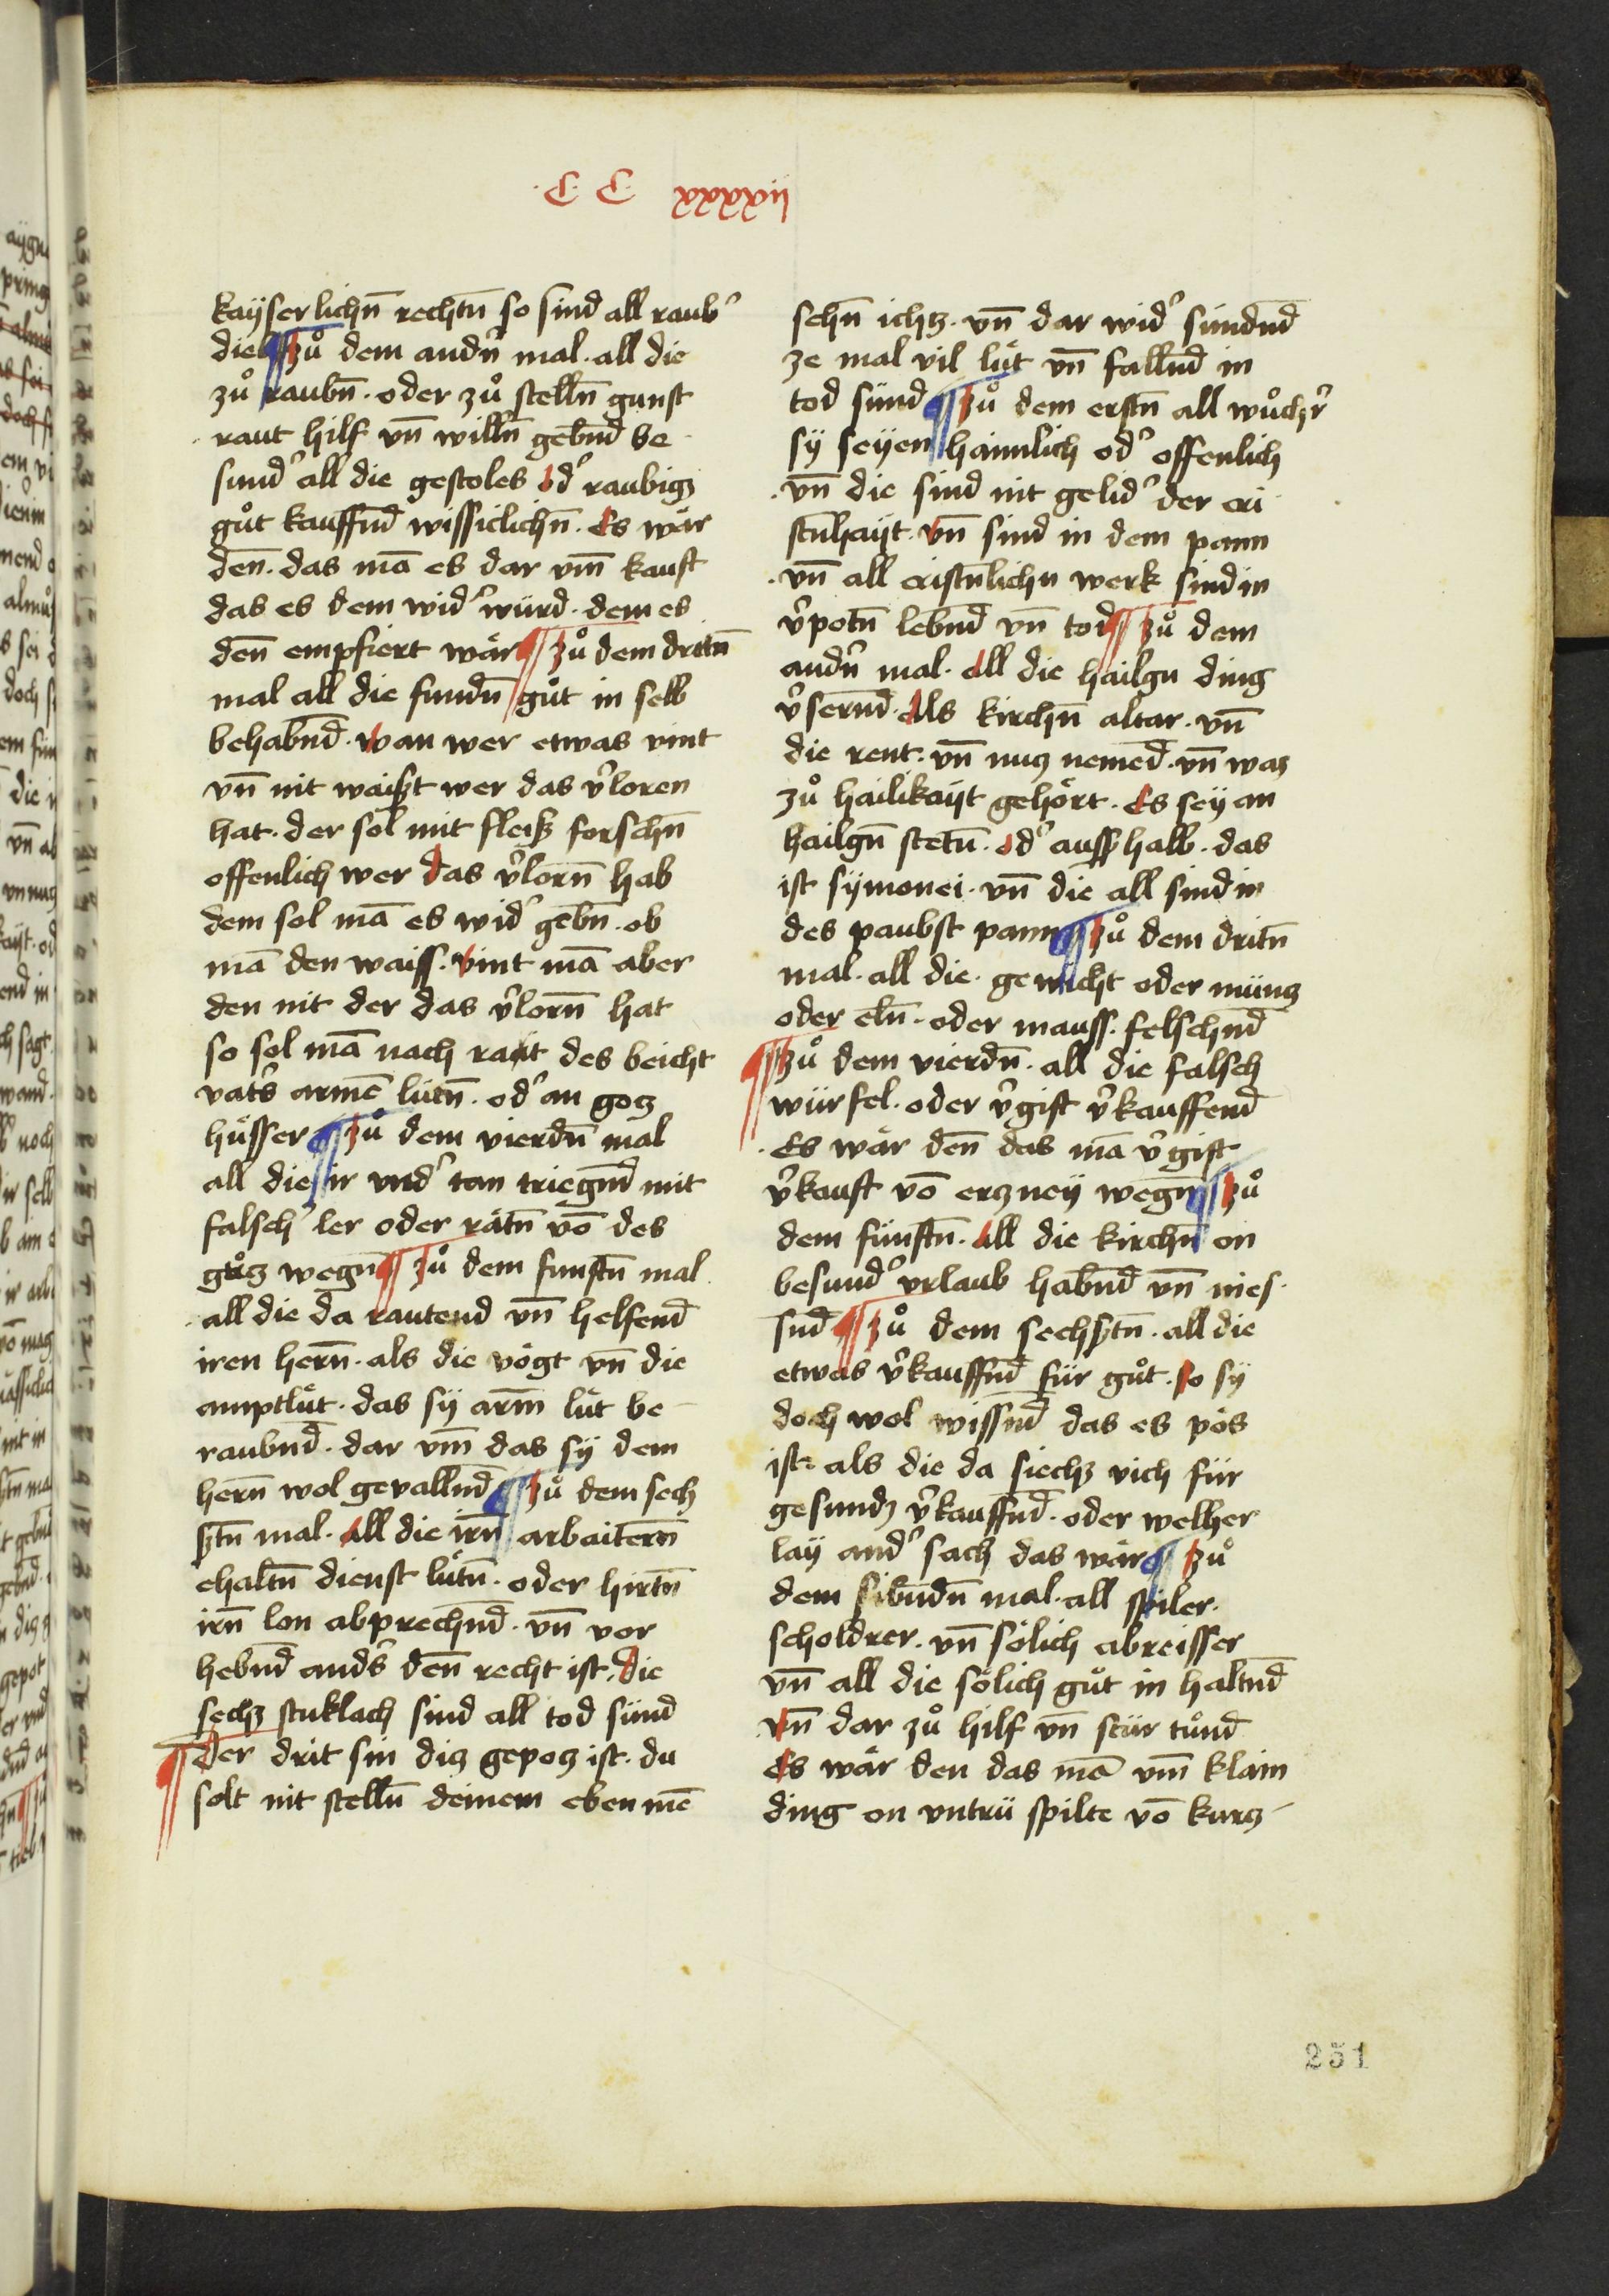 ·C· C· xxxxij
kaÿserlichn̄ rechtn̄ so sind all raub᾽
dieb ¶ zů dem andn᾽ mal · all die
zů raubn̄ · oder zů stelln̄ gunst
raut hilf vn̄ willn̄ gebnd̄ be
sund᾽ all die gestoles od᾽ raubigz
gůt kauffnd̄ wissiclichn̄ · Es wär
den̄ · das mā es dar vm̄ kauft
das es dem wid᾽ würd · dem es
den̄ empfiert wär ¶ zů dem drittn̄
mal all die fundn̄ gůt in selb
behabnd̄ · wan wer etwas vint
vn̄ nit waißt wer das v᾽loren
hat · der sol mit fleiß forschn̄
offenlich wer das v᾽lorn̄ hab
dem sol mā es wid᾽ gebn̄ · ob
mā den waiss · vint mā aber
den nit der das v᾽lorn̄ hat
so sol mā nach raut des beicht
vat᾽s armē lütn̄ · od᾽ an gotz
hüsser ¶ zů dem vierdn̄ mal
all die ir vnd᾽tan triegnd̄ mit
falsch᾽ ler oder rätn̄ vō des
gůtz wegn̄ ¶ zů dem funftn̄ mal
all die da rautend vn̄ helfend̄
iren hern̄ · als die vögt vn̄ die
amptlüt · das sÿ arm̄ lüt be
raubnd̄ · dar vm̄ das sÿ dem
hern̄ wol gevallnd̄ ¶ zů dem sech
ßtn̄ mal · All die irn̄ arbaitern̄
ehaltn̄ dienst lütn̄ · oder hirtn̄
irn̄ lon abprechnd̄ · vn̄ vor
hebnd̄ and᾽s den̄ recht ist · die
sechz stuklach sind all tod sünd
¶ Der drit sin diz gepotz ist · du
solt nit stelln̄ deinem eben mē
schn̄ ichtz · vn̄ dar wid᾽ sündnd̄
ze mal vil lüt vn̄ fallnd̄ in
tod sünd ¶ zů dem erstn̄ all wůchr᾽
sÿ seÿen haimlich od᾽ offenlich
vn̄ die sind nit gelid᾽ der cri
stn̄haÿt · vn̄ sind in dem pann
vn̄ all cristn̄lichn werk sind in
v᾽potn̄ lebnd̄ vn̄ tod ¶ zů dem
andn᾽ mal · All die hailgn ding
v᾽sernd̄ · Als kirchn̄ altar · vn̄
die rent · vn̄ nutz nemed̄ · vn̄ waz
zů hailikaÿt gehört · Es seÿ an
hailgn̄ stetn̄ · od᾽ außhalb · das
ist sÿmonei · vn̄ die all sind in
des paubst pann ¶ zů dem dritn̄
mal · all die · gewicht oder müntz
oder eln̄ · oder mauss · felschnd̄
¶ zů dem vierdn̄ · all die falsch
würfel · oder v᾽gift v᾽kauffend̄
Es wär den̄ das mā v᾽gift
v᾽kauft vō ertzneÿ wegn̄ ¶ zů
dem fünftn̄ · All die kirchn̄ on
besund᾽ vrlaub habnd̄ vn̄ nies
snd̄ ¶ zů dem sechßtn̄ · all die
etwas v᾽kauffnd̄ für gůt · so sÿ
doch wol wissnd̄ das es pös
ist · als die da siechz vich für
gesundz v᾽kauffnd̄ · oder welher
laÿ and᾽ sach das wär ¶ zů
dem sibndn̄ mal · all spiler ·
scholdrer · vn̄ sölich abreisser
vn̄ all die sölich gůt in haltnd̄
vn̄ dar zů hilf vn̄ stür tůnd̄
Es wär den das mā vm̄ klain
ding on vntrü spilte vō kurtz
251